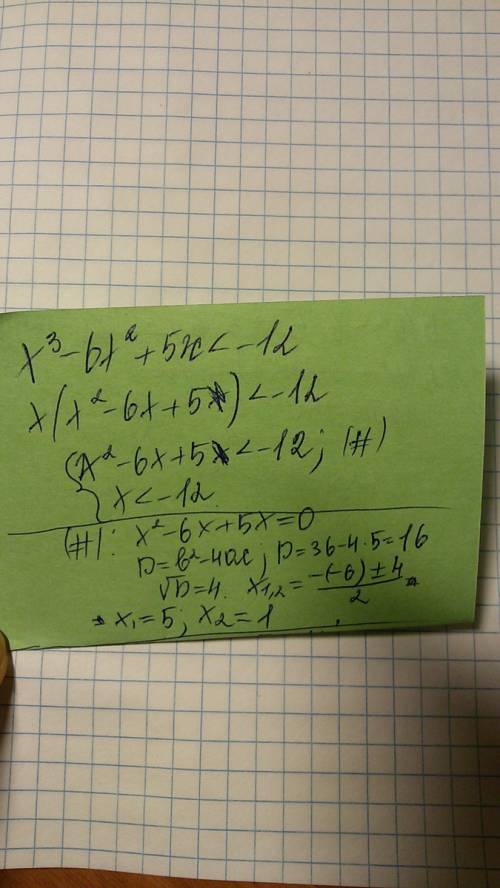 x³-6x²+5x<-12
x(x²-6x+5)<-12
{x²-6x+5<-12; (#)
x<-12.
(#): x²-6x+5x=0
D=b²-4ac; D=36-4·5=16
√D=4. x1,2=(-(-6)±4)/2
x₁=5; x₂=1